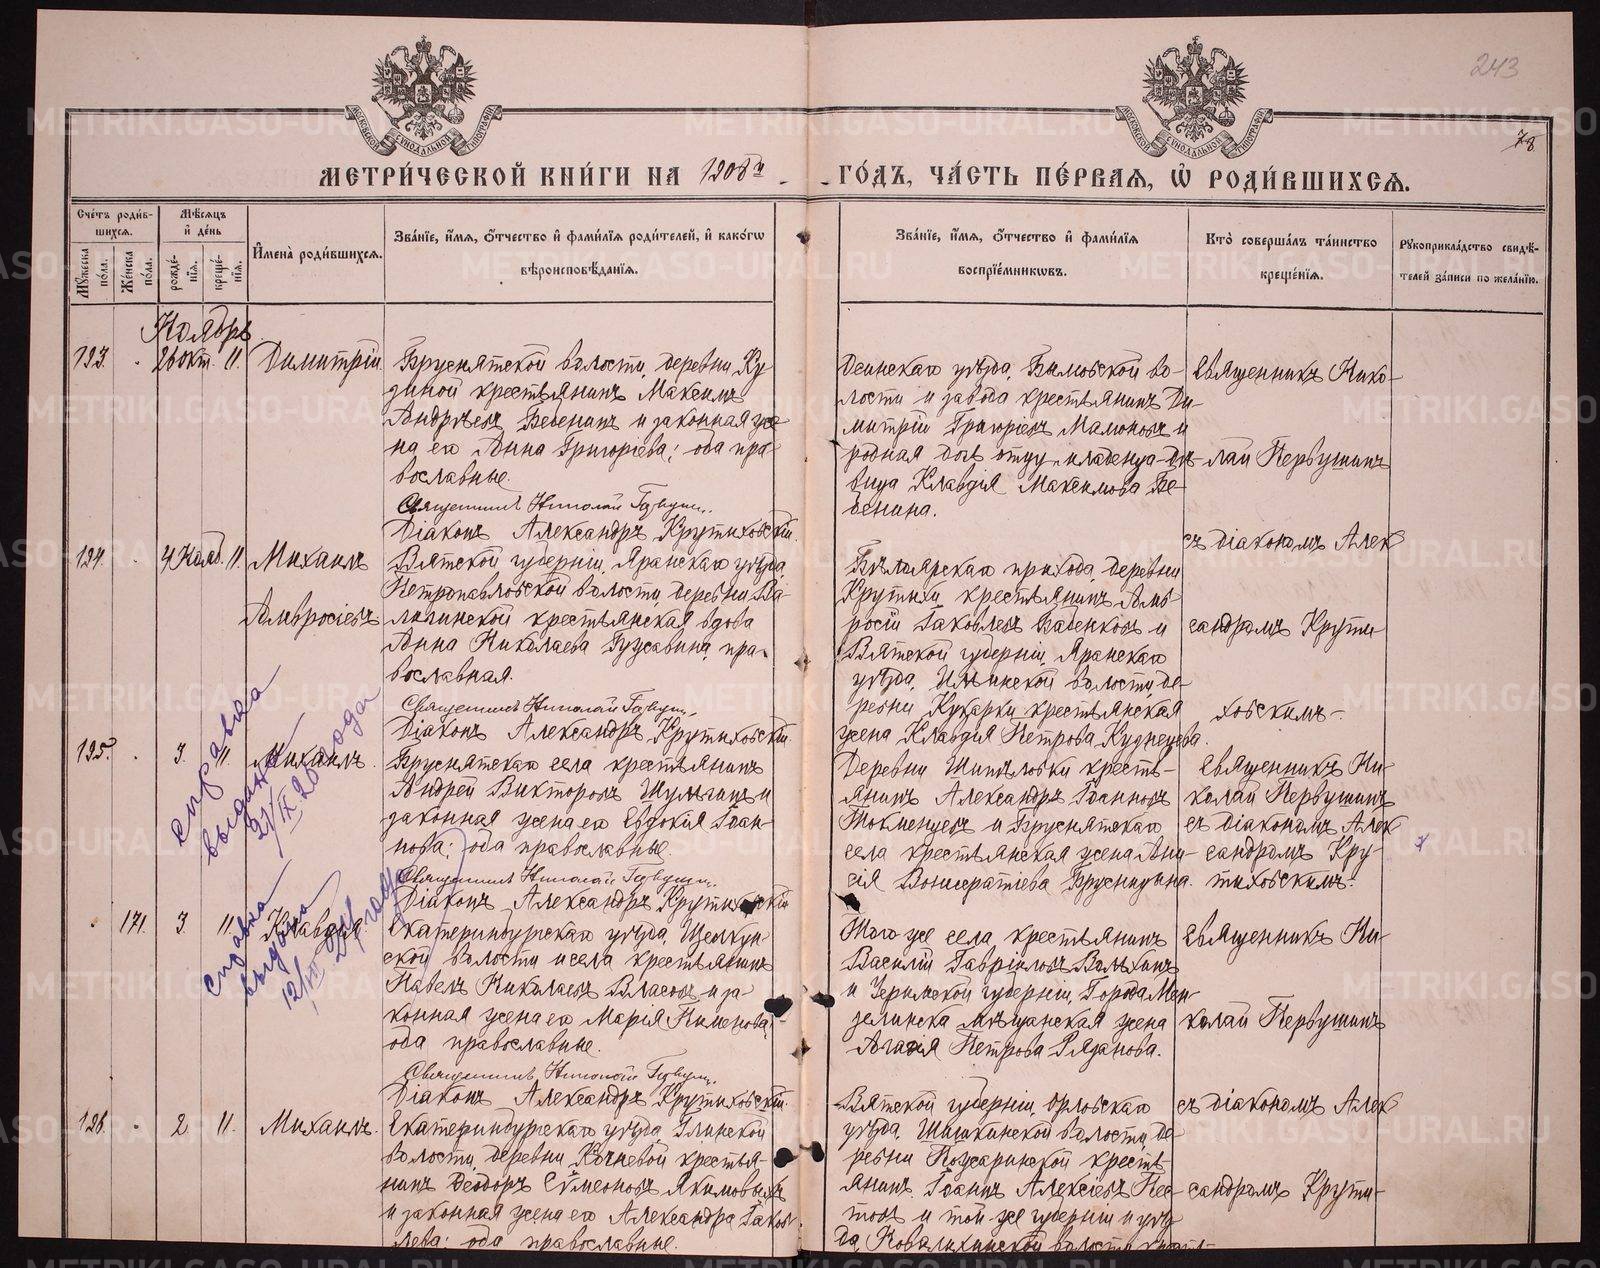 243
78
МОСКОВСКОЙ СѴНОДАЛЬНОЙ ТИПОГРАФІИ
МОСКОВСКОЙ СѴНОДАЛЬНОЙ ТИПОГРАФІИ
МЕТРИ́ЧЕСКОЙ КНИ́ГИ НА 1908й
ГО́ДЪ, ЧА́СТЬ ПЕ́РВАЯ, Ѡ҆ РОДИ́ВШИХСЯ.
Сче́тъ роди́в-
шихся.
Мꙋжеска по́ла.
Же́нска по́ла.
Мѣ́сяцъ
и҆ де́нь
рожде́-
нїя.
креще́-
нїя.
И҆мена̀ роди́вшихся.
Зва́нїе, и҆́мя, ѻ҆́тчество и҆ фами́лїя роди́телей, и҆ како́гѡ
вѣроисповѣ́данїя.
Зва́нїе, и҆́мя, ѻ҆́тчество и҆ фами́лїя
воспрїе́мникѡвъ.
Кто̀ соверша́лъ та́инство
креще́нїя.
Рꙋкоприкла́дство свидѣ́-
телей за́писи по жела́нїю.
Ноябрь
123. 26 окт. 11. Димитрій.
Бруснятской волости, деревни Ку
диной крестьянинъ Максимъ
Андреевъ Бебенинъ и законная же
на его Анна Григоріева; оба пра
вославные.
Священникъ Николай Первуш.
Діаконъ Александръ Крутиховскій.
Осинскаго уѣзда, Бымовской во-
лости и завода крестьянинъ Ди-
митрій Григоріевъ Мамоновъ и
родная дочь отцу младенца дѣ-
вица Клавдія Максимова Бе-
бенина.
Священникъ Нико-
лай Первушинъ
съ діакономъ Алек
124. 4 Нояб. 11. Михаилъ
Амвросіевъ
Вятской губерніи, Яранскаго уѣзда
Петропавловской волости, деревни
крестьянская вдова
Анна Николаева пра-
вославная.
Священникъ Николай Первуш.
Діаконъ Александръ Крутиховскій.
Бѣлоярскаго прихода, деревни
Крутихи крестьянинъ Амв
росій Іаковлевъ Бабенковъ и
Вятской губерніи, Яранскаго
уѣзда, Ильинской волости, де-
ревни Кукарки крестьянская
жена Клавдія Петрова Кузнецова.
сандромъ Крути-
ховскимъ.
125. 3. 11. Михаилъ.
Бруснятскаго села крестьянинъ
Андрей Викторовъ Шулягинъ и
законная жена его Евдокія Іоан-
нова; оба православные
Священникъ Николай Первуш.
Діаконъ Александръ Крутиховскій
Деревни Шипѣловки кресть-
янинъ Александръ Іоанновъ
Токменцевъ и Бруснятскаго
села крестьянская жена
Брусницына.
Священникъ Ни-
колай Первушинъ
съ діакономъ Алек
сандромъ Кру-
тиховскимъ.
справка
выдана
21/IX 26 года
171. 3. 11. Клавдія
Екатеринбургскаго уѣзда, Щелкун-
ской волости и села крестьянинъ
Павелъ Николаевъ Власовъ и за-
конная жена его Марія Пименова,
оба православные.
Священникъ Николай Первуш.
Діаконъ Александръ Крутиховскій.
Того же села крестьянинъ
Василій Гавріиловъ
и губерніи, Города Мен
зелинска мѣщанская жена
Агаѳія Петрова Рязанова.
Священникъ Ни-
колай Первушинъ
съ діакономъ Алек
справка
выдана
126. 2 11. Михаилъ.
Екатеринбургскаго уѣзда, Глинской
волости, деревни Ключевой крестья-
нинъ Ѳеодоръ Сѵмеоновъ Якимовыхъ
и законная жена его Александра Іаков-
лева; оба православные.
Вятской губерніи, Орловскаго
уѣзда, Шишкинской волости, де-
ревни крестьь
янинъ Іоаннъ Алексіевъ
и той же губерніи и уѣз
да, волости
сандромъ Крути-
METRIKI.GASO-URAL.RU